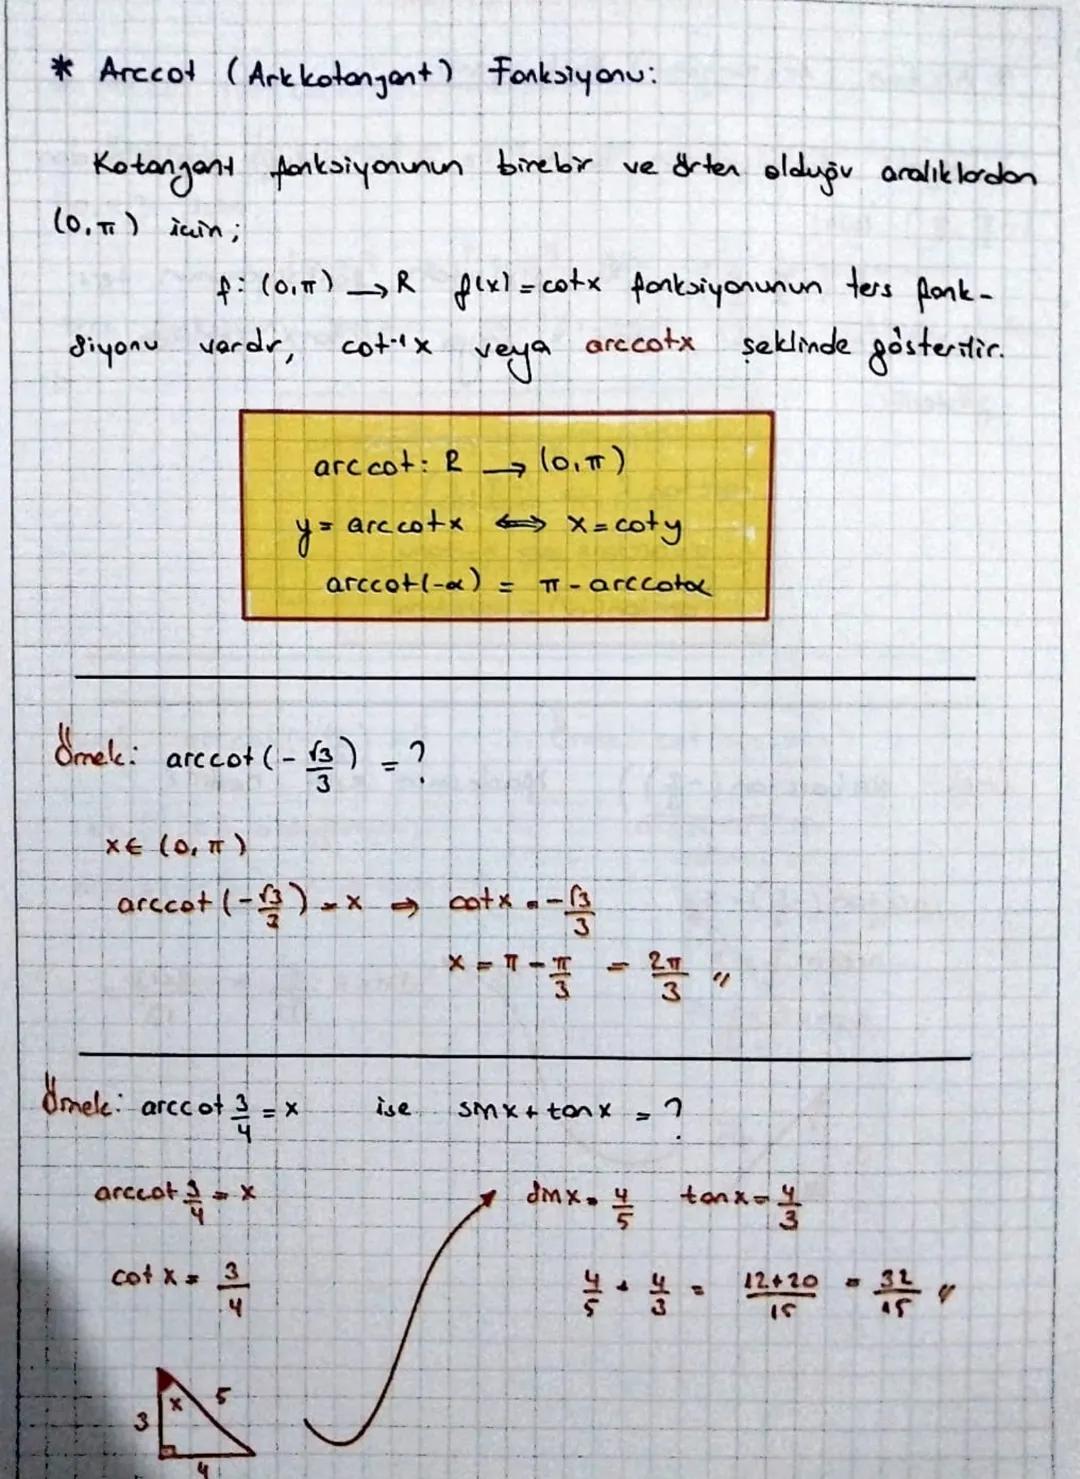 * Arccot (Arkkotanjant) Fonksiyonu:
Kotanjant fonksiyonunun birebir ve örten olduğu aralıklardan
(0, π) için;
f: (0,π) → R f(x) = cotx fonksiyonunun ters fonk-
siyonu vardır, cot⁻¹x veya arccotx şeklinde gösterilir.
arccot: R → (0,π)
y = arccotx ⟺ x = coty
arccot(-α) = π - arccotα
Örnek: arccot(-√3/3) = ?
x ∈ (0, π)
arccot(-√3/3) = x ⇒ cotx = -√3/3
x = π - π/3 = 2π/3 //
Örnek: arccot 3/4 = x ise sinx + tanx = ?
arccot 3/4 = x sinx = 4/5 tanx = 4/3
cot x = 3/4 4/5 + 4/3 = 12+20/15 = 32/15 //
x 5
3
4